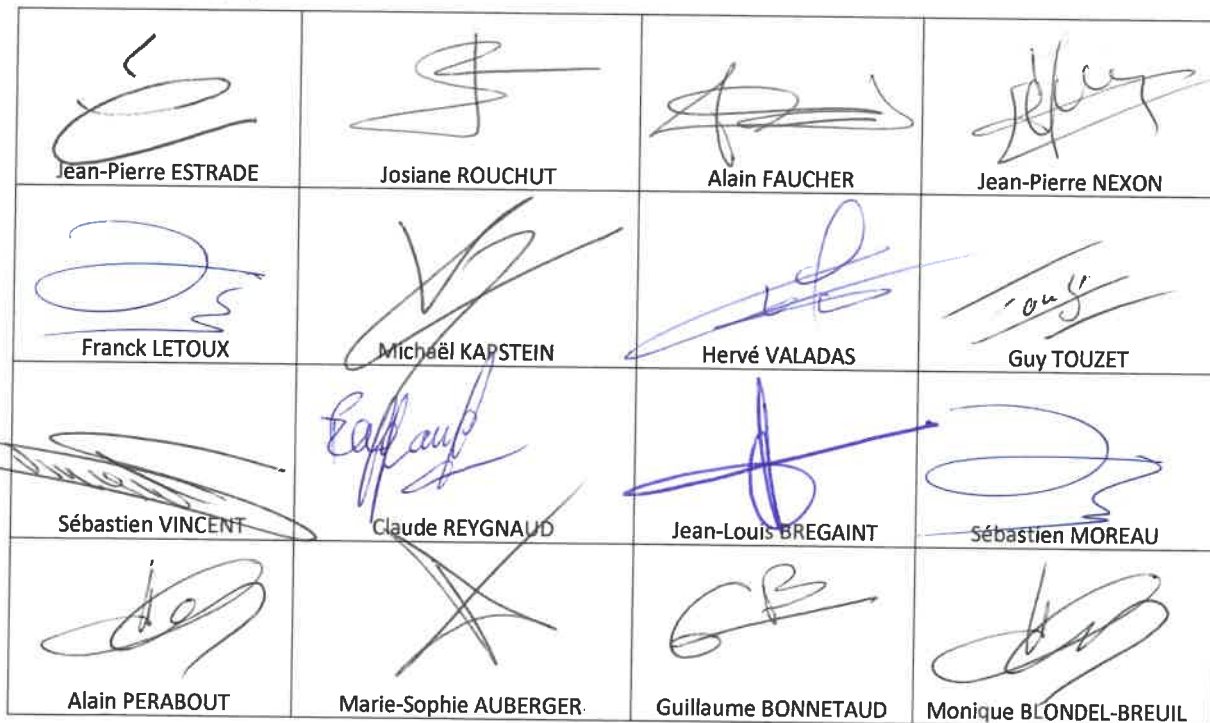 Jean-Pierre ESTRADE
Josiane ROUCHUT
Alain FAUCHER
Jean-Pierre NEXON
Franck LETOUX
Michaël KAPSTEIN
Hervé VALADAS
Guy TOUZET
Sébastien VINCENT
Claude REYGNAUD
Jean-Louis BREGAINT
Sébastien MOREAU
Alain PERABOUT
Marie-Sophie AUBERGER
Guillaume BONNETAUD
Monique BLONDEL-BREUIL